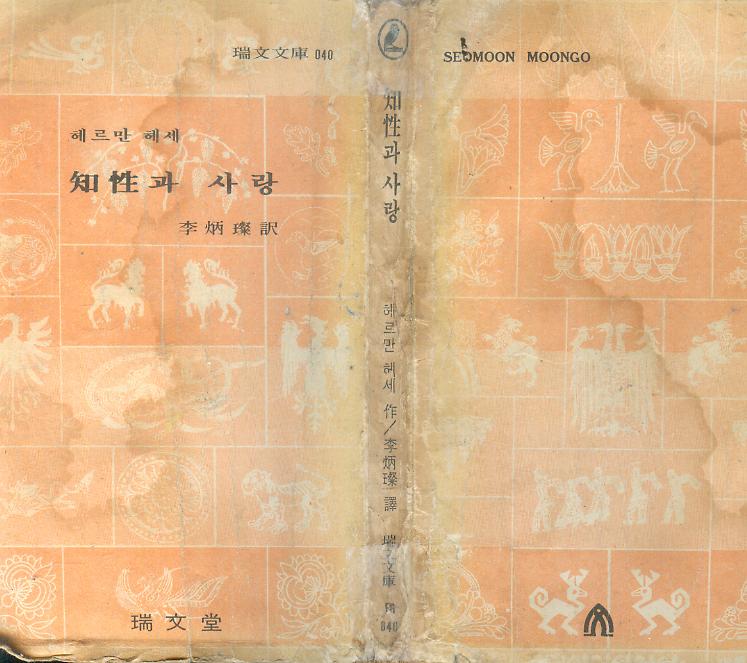 瑞文文庫 040
헤르만 헤세
知性과 사랑
李炳璨 訳
瑞文堂
知性과 사랑
헤르만 헤세 作/李炳璨 譯
瑞文文庫
040
SEOMOON MOONGO